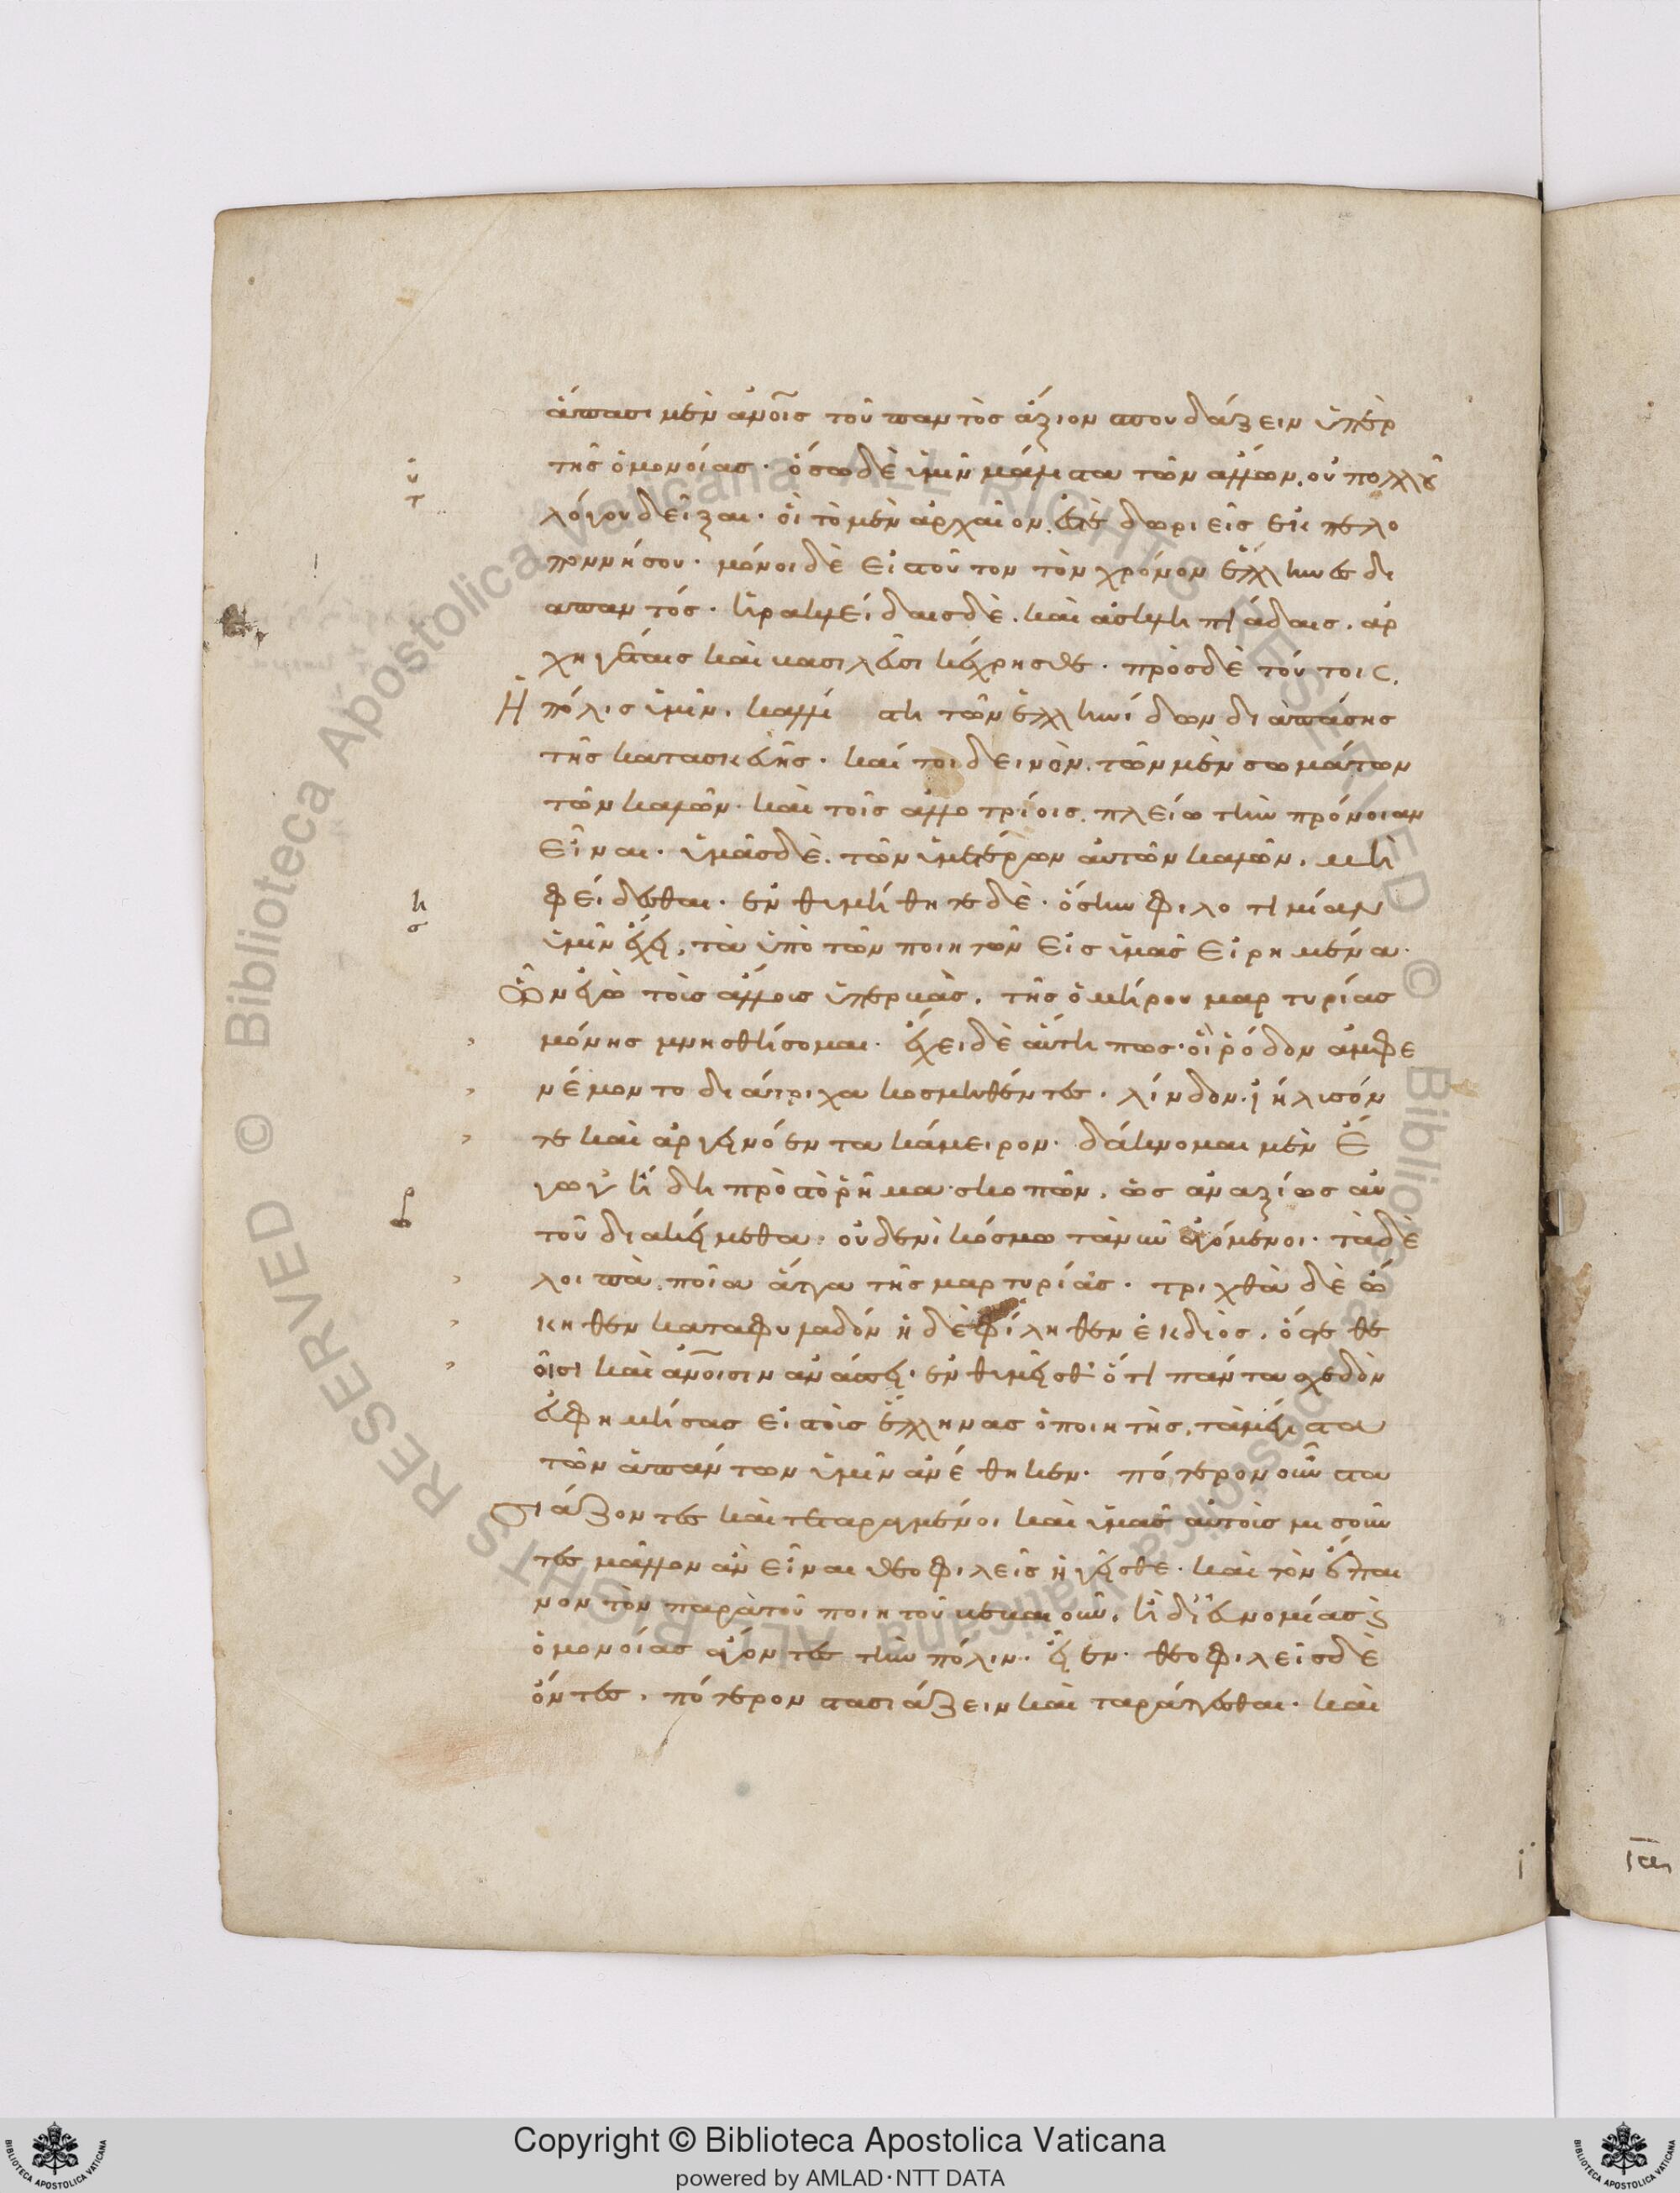 ἅπασι μὲν ἀνοις τοῦ παντὸς ἄξιον σπουδάζειν ὑπὲρ
τῆς ὁμονοίας. ὅσω δὲ ὑμῖν μάλιστα τῶν ἄλλων, οὐ πολλοῦ
λόγου δεῖξαι. οἳ τὸ μὲν ἀρχαῖον ἐστὲ δωριεῖς ἐκ πελο
ποννήσου. μόνοι δὲ εἰς τοῦτον τὸν χρόνον ἕλληνες δι
απαντός. ἡρακλείδαις δὲ. καὶ ἀσκληπιάδαις. ἀρ
χηγέταις καὶ βασιλεῦσι κέχρησθε. πρὸς δὲ τούτοις,
ἡ πόλις ὑμῖν, καλλίστη τῶν ἑλληνίδων διαπάσης
τῆς κατασκευῆς. καίτοι δεινὸν. τῶν μὲν σωμάτων
τῶν καλῶν. καὶ τοῖς ἀλλοτρίοις, πλείω τὴν πρόνοιαν
εἶναι. ὑμᾶς δὲ. τῶν ὑμετέρων αὐτῶν καλῶν, μὴ
φείδεσθαι. ἐνθυμήθητε δὲ. ὅσην φιλοτιμίαν
ὑμῖν ἔχει, τὰ ὑπὸ τῶν ποιητῶν εἰς ὑμᾶς εἰρημένα.
ὧν ἐγὼ τοὺς ἄλλους ὑπερβὰς. τῆς ὁμήρου μαρτυρίας
μόνης μνησθήσομαι. ἔχει δὲ αὕτη πως. οἳ ῥόδον ἀμφε
νέμοντο διάτριχα κοσμηθέντες. λίνδον. ἰηλισόν
τε καὶ ἀργινόεντα κάμειρον. δάκνομαι μὲν ἔ
γωγ' ἤδη πρὸς τὸ ῥῆμα σκοπῶν, ὡς ἀναξίως αὐ
τοῦ διακείμεθα. οὐδενὶ κόσμω τὰ νῦν ἀγόμενοι. τὰ δὲ
λοιπὰ, ποῖα ἄττα τῆς μαρτυρίας. τριχθὰ δὲ ὤ
κηθεν καταφυλαδόν ἠδὲ φίληθεν ἐκ διὸς. ὅστε θε
οῖσι καὶ ἀνοισιν ἀνάσσει. ἐνθυμεῖσθ' ὅτι πάντα σχεδὸν
εὐφημήσας εἰς τοὺς ἕλληνας ὁ ποιητὴς, τὰ μέγιστα
τῶν ἁπάντων ὑμῖν ἀνέθηκεν. πότερον οὖν στα
σιάζοντες καὶ τεταραγμένοι καὶ ὑμᾶς αὐτοὺς μισοῦν
τες μᾶλλον ἂν εἶναι θεοφιλεῖς ἡγεῖσθε. καὶ τὸν ἔπαι
νον τὸν παρὰ τοῦ ποιητοῦ βεβαιοῦν, ἢ δι' εὐνομίας ϗ
ὁμονοίας ἄγοντες τὴν πόλιν. εἶεν. θεοφιλεῖς δὲ
ὄντες, πότερον στασιάζειν καὶ ταράττεσθαι. καὶ